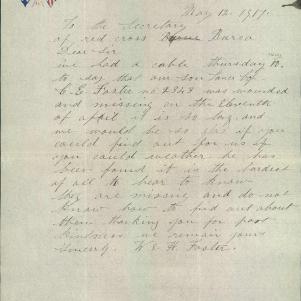 May 12. 1917.
To the Secretary
of red cross Barea
Dear Sir
we had a cable thursday
to say that our son
C. E. Foster no 2343 was wounded
and missing on the Eleventh
of april it is so long and
we would be so glad if you
could find out for us if
you could weather he has
been found it is the hardest
of all to bear to know
are missing and do not
know how to find out about
them thanking you for past
kindness we remain yours
Sincerly. W. & H. Foster.